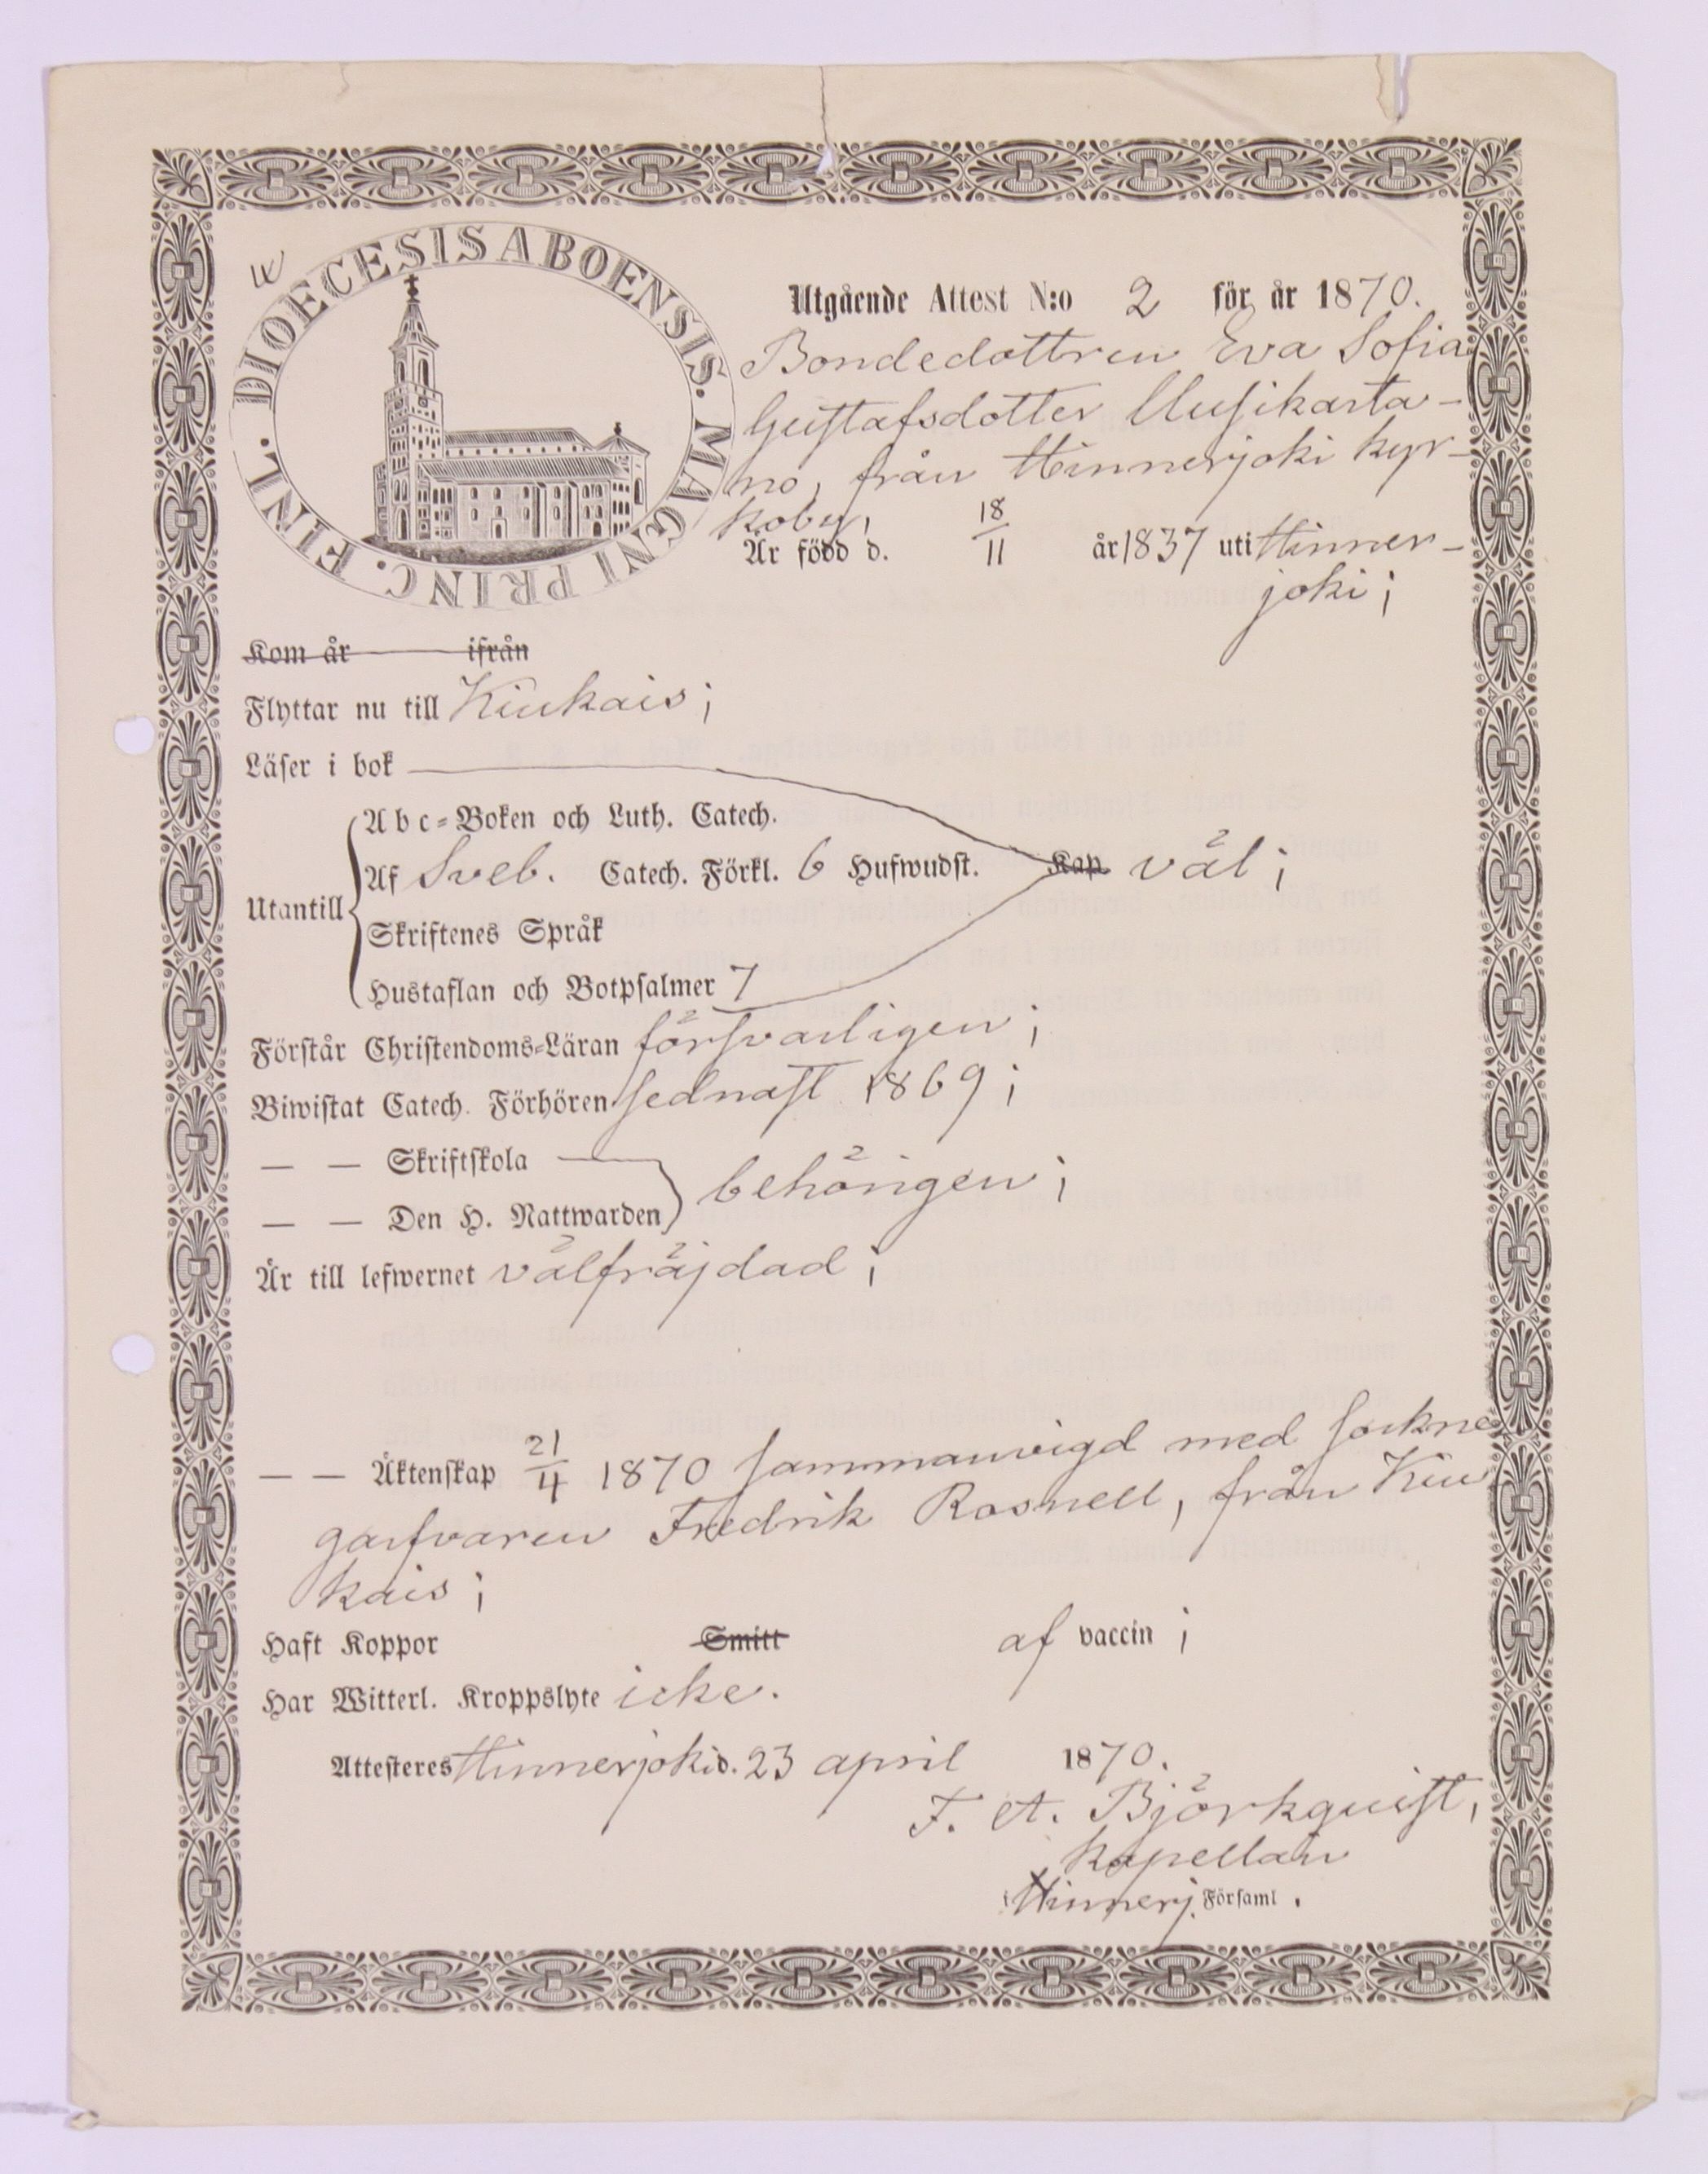 w
DIOECESIS ABOENSIS. MAGNI PRINC. FINL.
Utgående Attest N:o 2 för år 1870.
Bondedottren Eva Sofia
Gustafsdotter Uusikarta-
no, från Hinnerjoki kyr-
koby,
Är född d. 18/11 år 1837 uti Hinner-
joki;
Kom år ifrån
Flyttar nu till Kiukais;
Läser i bok
Abc-Boken och Luth. Catech.
Utantill Af Sveb. Catech. Förkl. 6 Hufwudst. Kap. väl;
Skriftenes Språk
Hustaflan och Botpsalmer 7
Förstår Christendoms-Läran försvarligen;
Biwistat Catech. Förhören sednast 1869;
— — Skriftskola
— — Den H. Nattwarden behörigen;
Är till lefwernet välfräjdad;
— — Äktenskap 21/4 1870 sammanvigd med sockne
garfvaren Fredrik Rosnell, från Kiu
kais;
Haft Koppor Smitt af vaccin;
Har Witterl. Kroppslyte icke.
Attesteres Hinnerjoki d. 23 april 1870.
F. A. Björkquist,
kapellan
i Hinnerj. Församl.